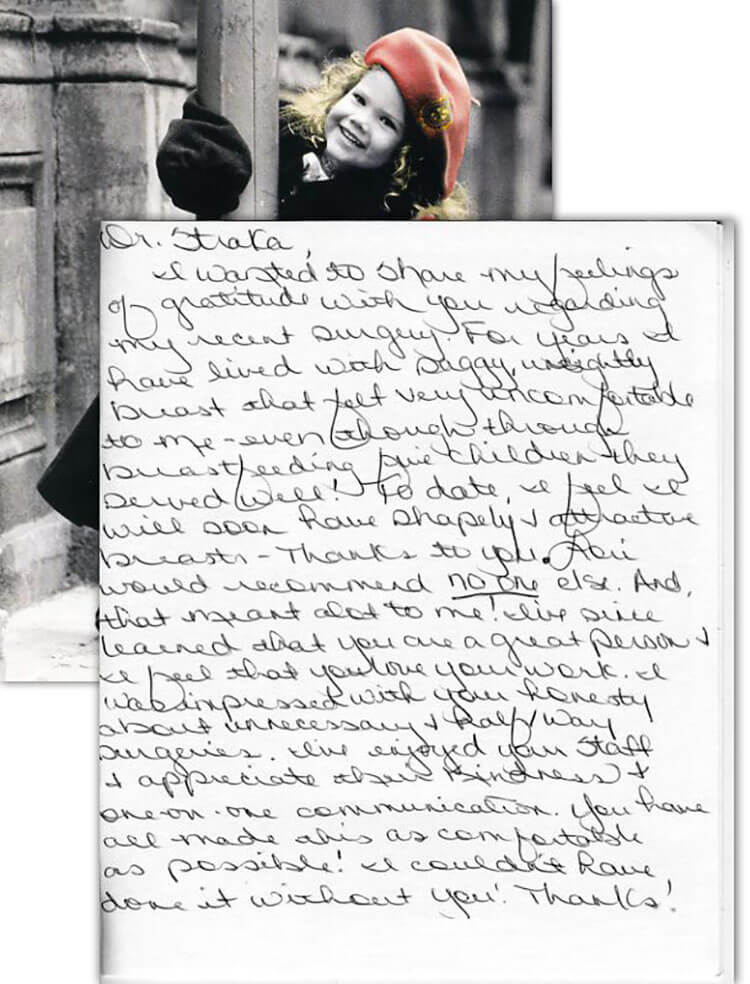 Dr. Straka,
I wanted to share my feelings
of gratitude with you regarding
my recent surgery. For years I
have lived with saggy, unsightly
breast that felt very uncomfortable
to me - even though through
breastfeeding five children they
served well! To date, I feel I
will soon have shapely & attractive
breasts - Thanks to you.
would recommend no one else. And,
that meant alot to me! I've since
learned that you are a great person &
I feel that you love your work. I
was impressed with your honesty
about unnecessary & half way
surgeries. I've enjoyed your staff
& appreciate their kindness &
one-on-one communication. You have
all made this as comfortable
as possible! I couldn't have
done it without you! Thanks!